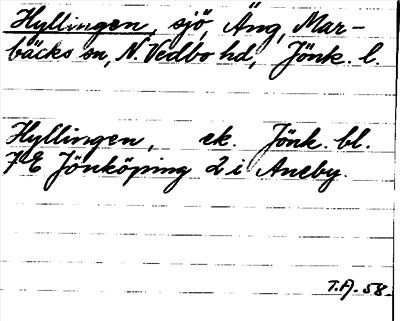 Hyllingen, sjö, Äng, Mar-
bäcks sn, N. Vedbo hd, Jönk. l.
Hyllingen, ek. Jönk. bl.
7E Jönköping 2 i Aneby.
T.A. 58.